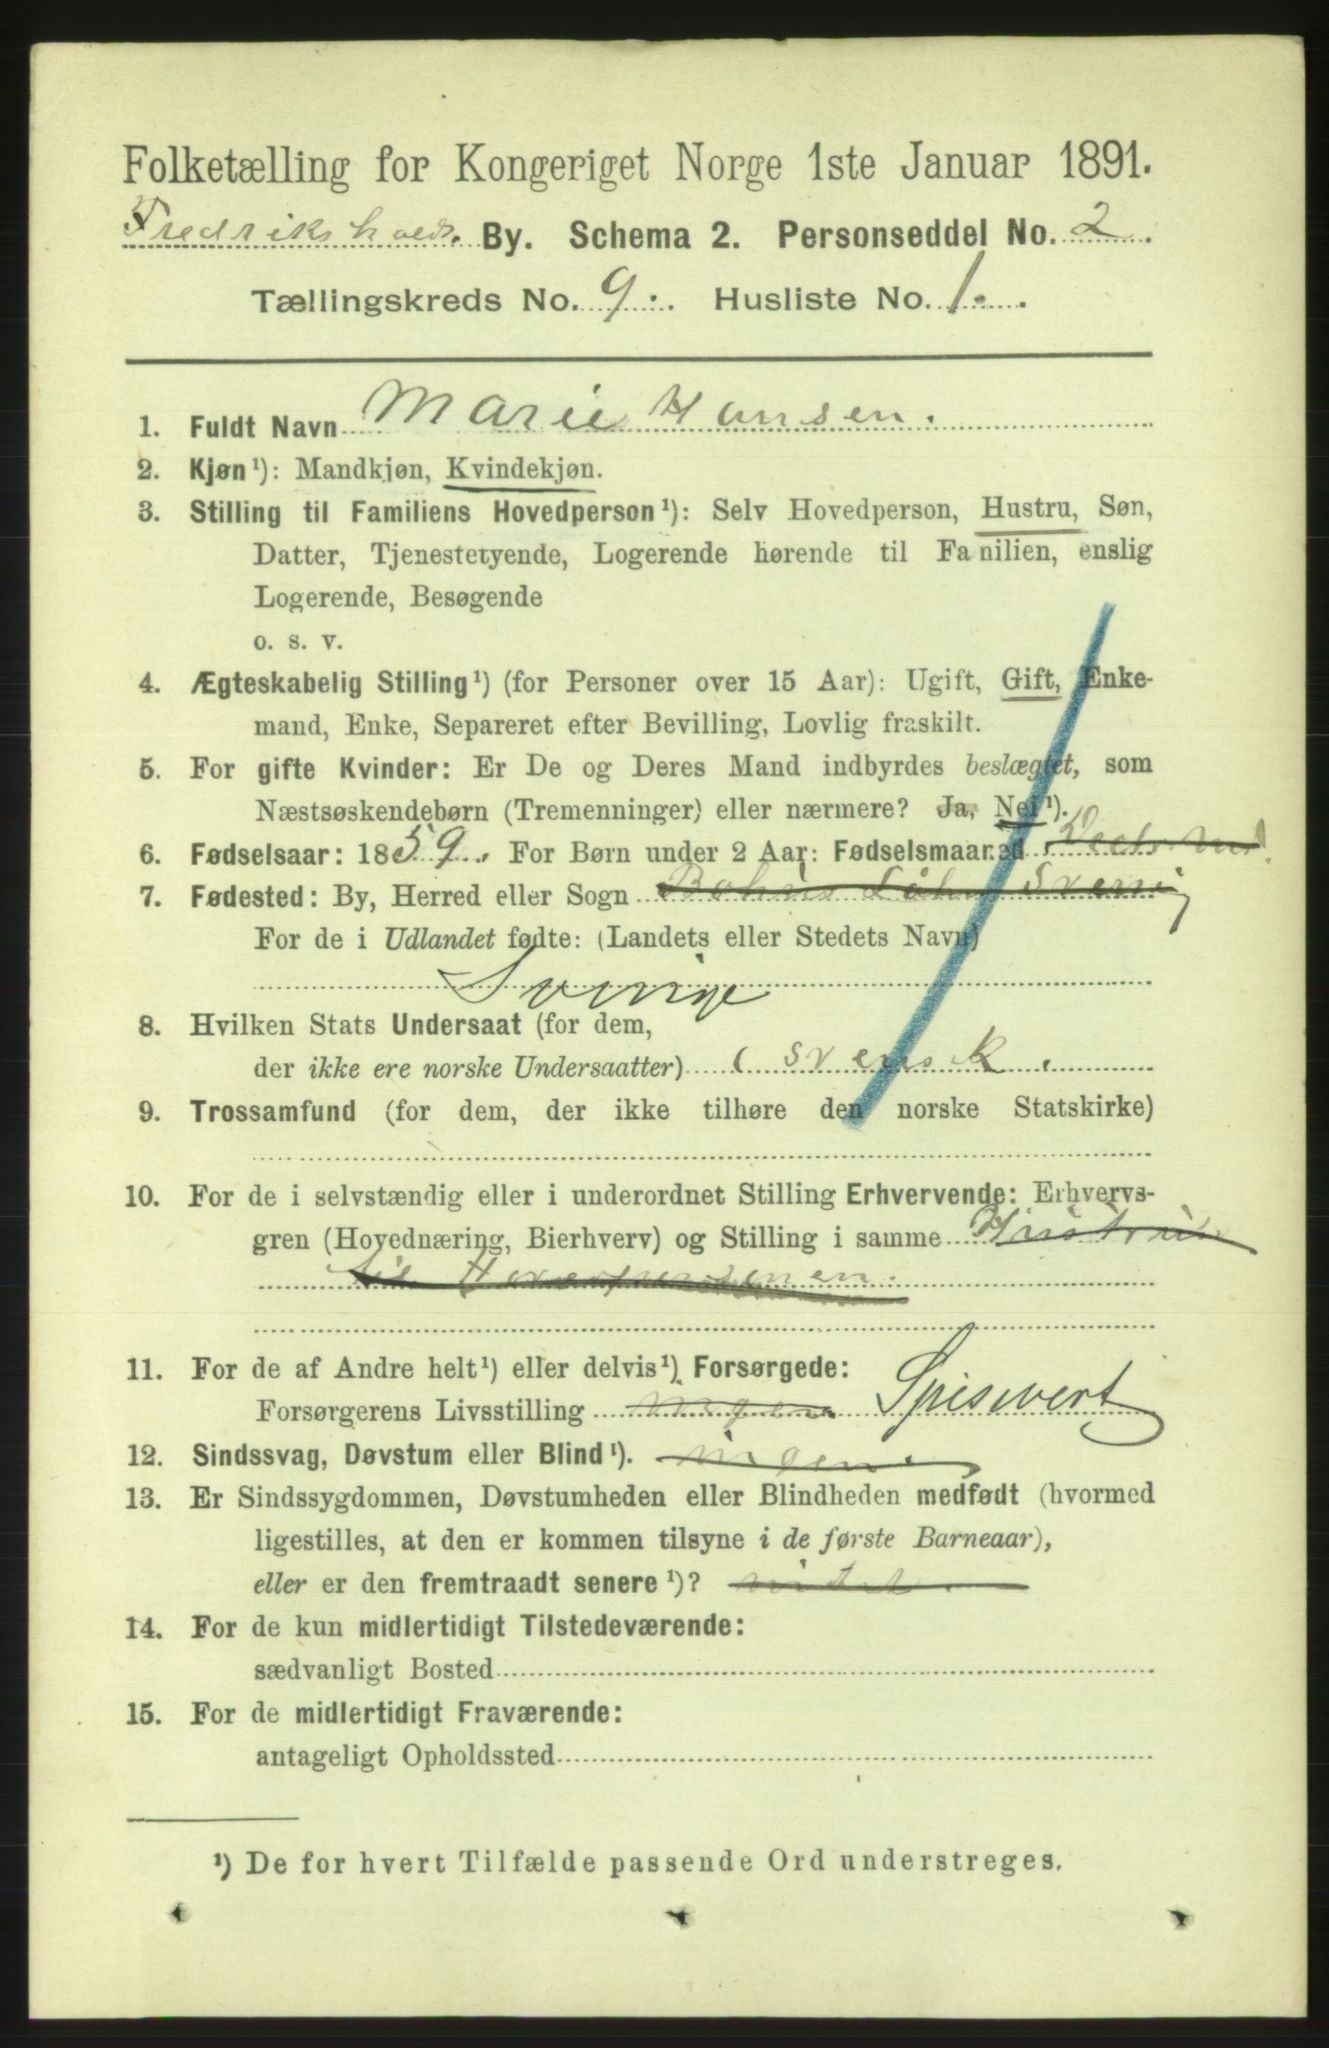 Folketælling for Kongeriget Norge 1ste Januar 1891.
Fredrikshald. By. Schema 2. Personseddel No. 2.
Tællingskreds No. 9. Husliste No. 1.
1. Fuldt Navn Marie Hansen.
2. Kjøn¹): Mandkjøn, Kvindekjøn.
3. Stilling til Familiens Hovedperson¹): Selv Hovedperson, Hustru, Søn,
Datter, Tjenestetyende, Logerende hørende til Familien, enslig
Logerende, Besøgende
o. s. v.
4. Ægteskabelig Stilling¹) (for Personer over 15 Aar): Ugift, Gift, Enke-
mand, Enke, Separeret efter Bevilling, Lovlig fraskilt.
5. For gifte Kvinder: Er De og Deres Mand indbyrdes beslægtet, som
Næstsøskendebørn (Tremenninger) eller nærmere? Ja, Nei¹).
6. Fødselsaar: 1859. For Børn under 2 Aar: Fødselsmaaned
7. Fødested: By, Herred eller Sogn Bohus Sverrig
For de i Udlandet fødte: (Landets eller Stedets Navn)
Sverige
8. Hvilken Stats Undersaat (for dem,
der ikke ere norske Undersaatter) (svensk.
9. Trossamfund (for dem, der ikke tilhøre den norske Statskirke)
10. For de i selvstændig eller i underordnet Stilling Erhvervende: Erhvervs-
gren (Hovednæring, Bierhverv) og Stilling i samme Hustru
til Hovedpersonen.
11. For de af Andre helt¹) eller delvis¹) Forsørgede:
Forsørgerens Livsstilling ingen Spisevert
12. Sindssvag, Døvstum eller Blind¹). ingen
13. Er Sindssygdommen, Døvstumheden eller Blindheden medfødt (hvormed
ligestilles, at den er kommen tilsyne i de første Barneaar),
eller er den fremtraadt senere¹)?
14. For de kun midlertidigt Tilstedeværende:
sædvanligt Bosted
15. For de midlertidigt Fraværende:
antageligt Opholdssted
¹) De for hvert Tilfælde passende Ord understreges.